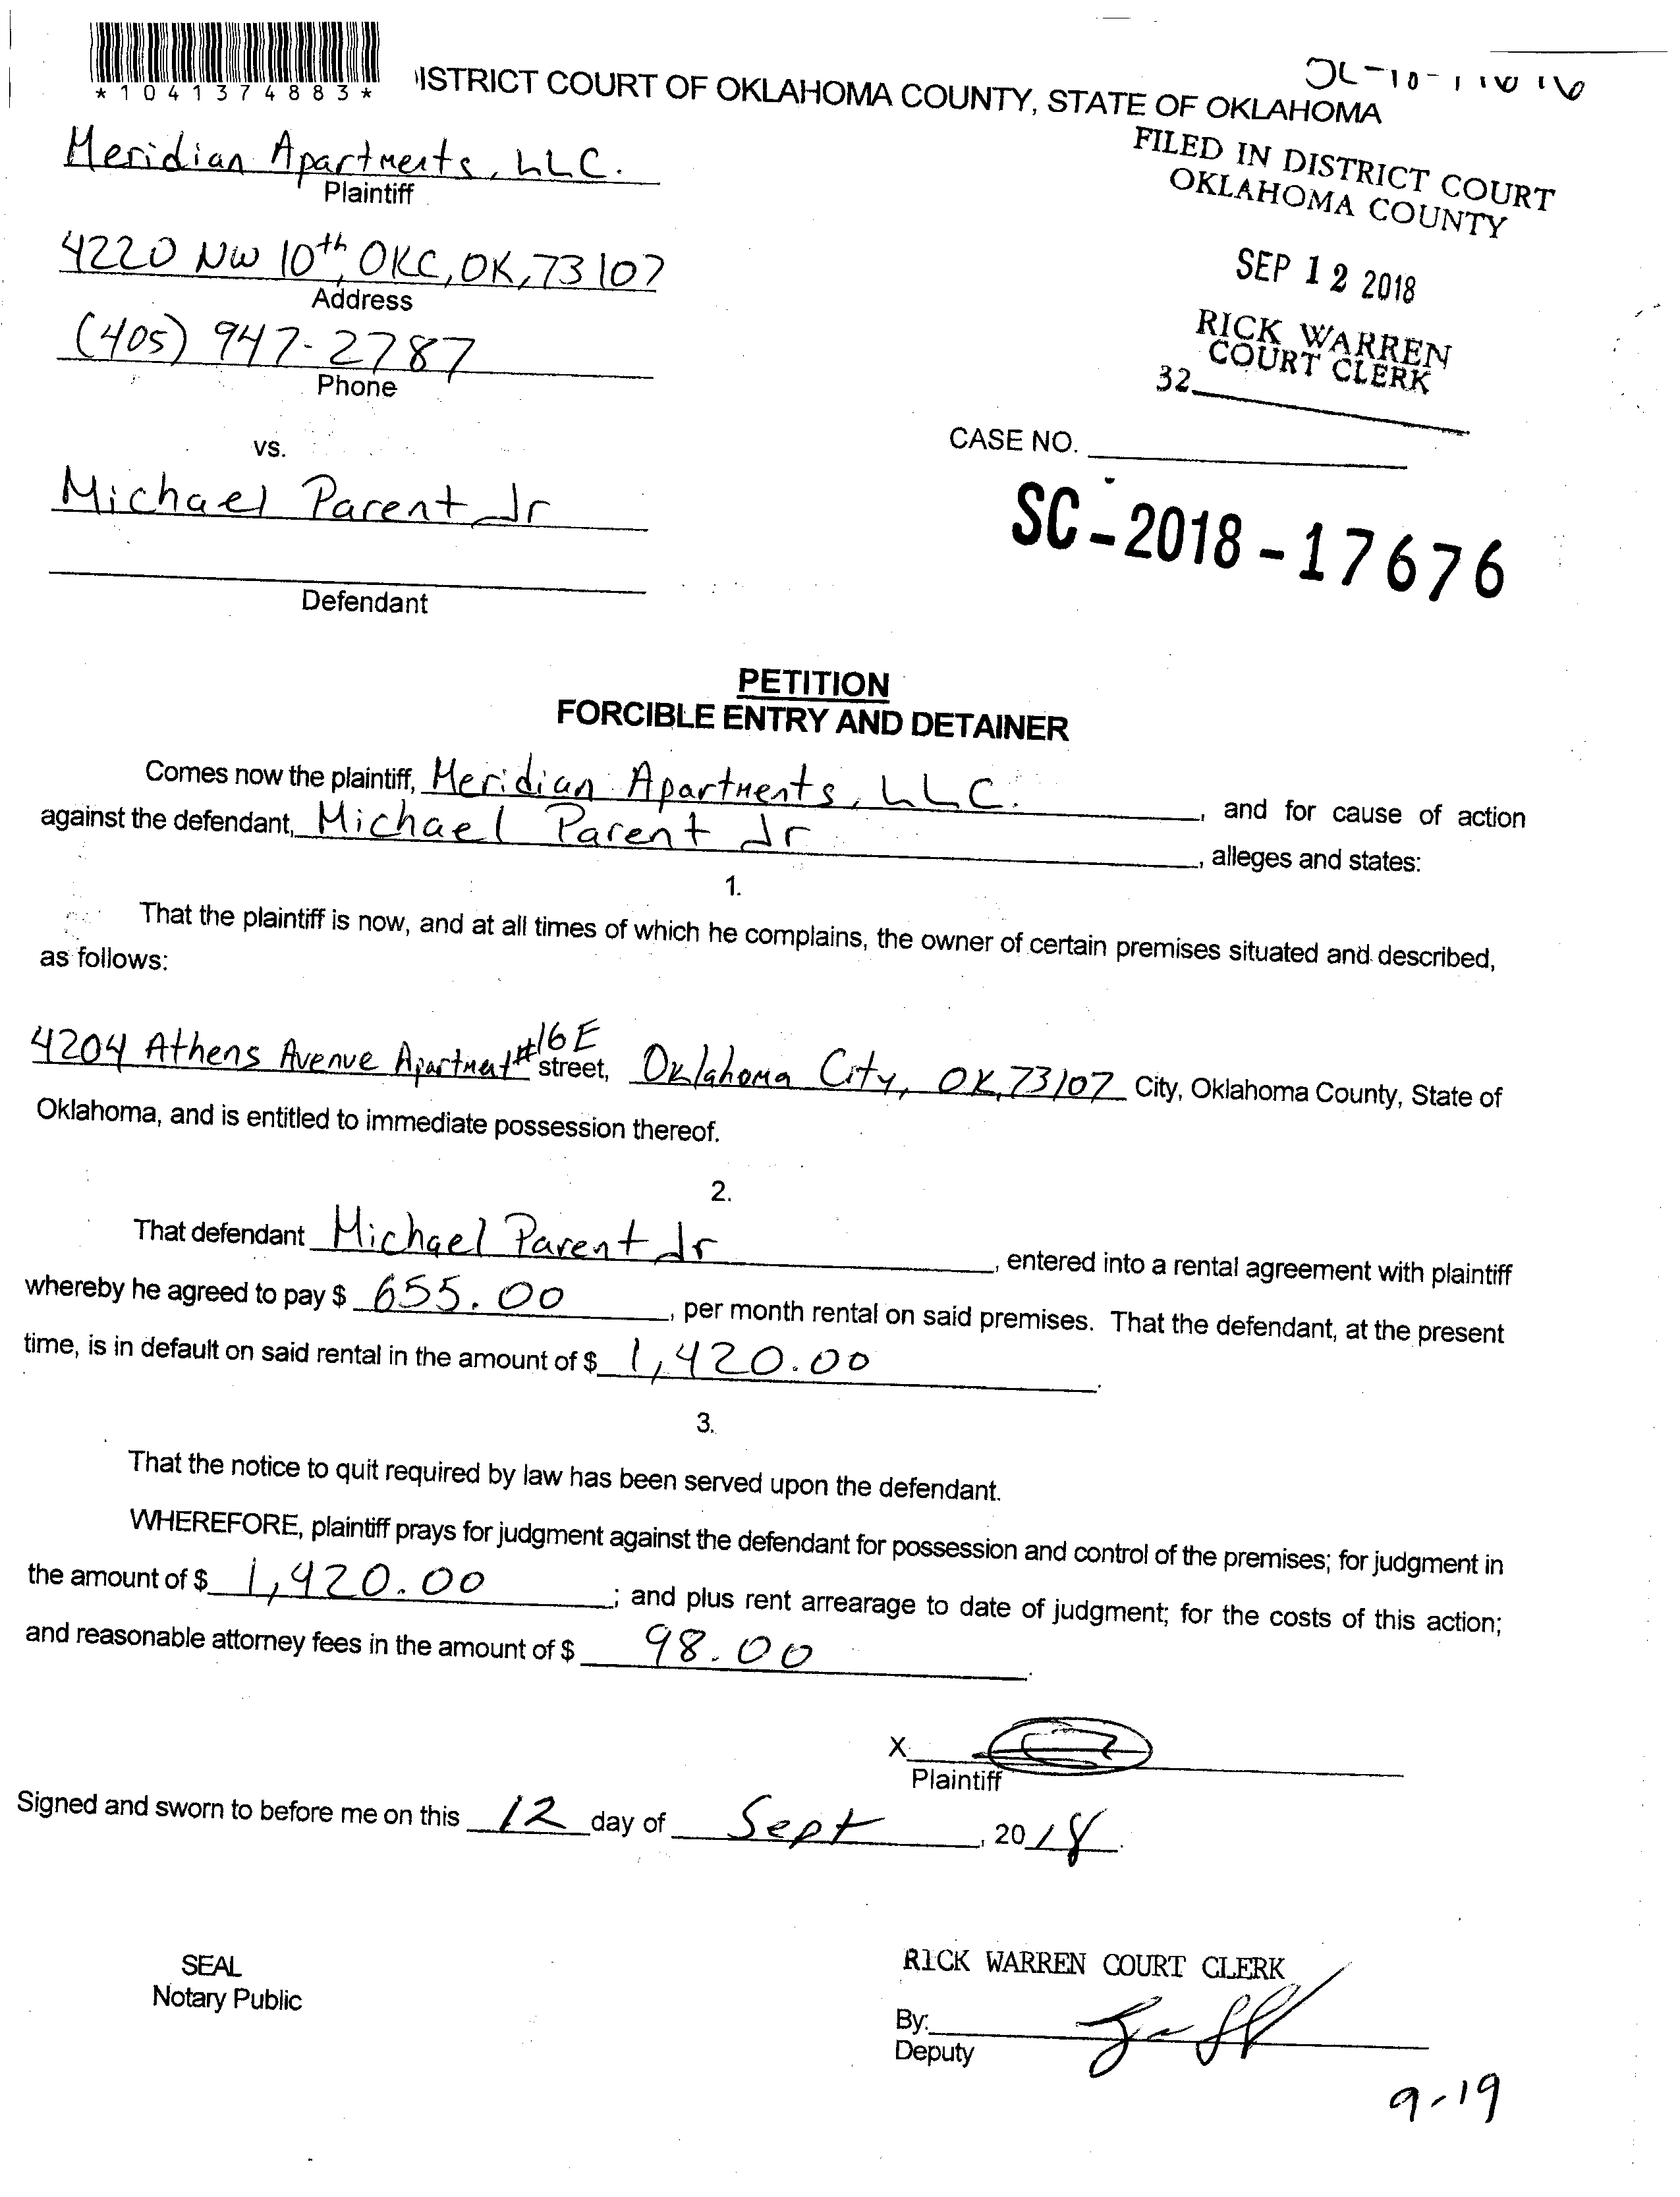 *1041374883*
ISTRICT COURT OF OKLAHOMA COUNTY, STATE OF OKLAHOMA
Meridian Apartments, LLC.
Plaintiff
FILED IN DISTRICT COURT
OKLAHOMA COUNTY
4220 NW 10th, OKC, OK, 73107
Address
SEP 12 2018
(405) 947-2787
Phone
RICK WARREN
COURT CLERK
32
vs.
CASE NO.
Michael Parent Jr
SC-2018-17676
Defendant
PETITION
FORCIBLE ENTRY AND DETAINER
Comes now the plaintiff, Meridian Apartments, LLC. , and for cause of action
against the defendant, Michael Parent Jr , alleges and states:
1.
That the plaintiff is now, and at all times of which he complains, the owner of certain premises situated and described,
as follows:
4204 Athens Avenue Apartment #16E street, Oklahoma City, OK, 73107 City, Oklahoma County, State of
Oklahoma, and is entitled to immediate possession thereof.
2.
That defendant Michael Parent Jr , entered into a rental agreement with plaintiff
whereby he agreed to pay $ 655.00 , per month rental on said premises. That the defendant, at the present
time, is in default on said rental in the amount of $ 1,420.00 .
3.
That the notice to quit required by law has been served upon the defendant.
WHEREFORE, plaintiff prays for judgment against the defendant for possession and control of the premises; for judgment in
the amount of $ 1,420.00 ; and plus rent arrearage to date of judgment; for the costs of this action;
and reasonable attorney fees in the amount of $ 98.00 .
X
Plaintiff
Signed and sworn to before me on this 12 day of Sept , 2018.
SEAL
Notary Public
RICK WARREN COURT CLERK
By:
Deputy
9-19